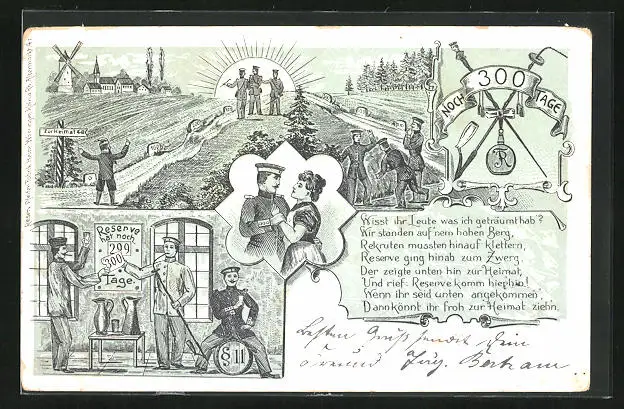 NOCH 300 TAGE
Zur Heimat
R
Reserve
hat noch
299
300
Tage.
§ 11
Wisst ihr Leute was ich geträumt hab'?
Wir standen auf nem hohen Berg,
Rekruten mussten hinauf klettern,
Reserve ging hinab zum Zwerg.
Der zeigte unten hin zur Heimat,
Und rief: Reserve komm hierhin!
Wenn ihr seid unten angekommen,
Dann könnt ihr froh zur Heimat zieh'n.
Besten Gruß sendet Dein
Freund Bertram